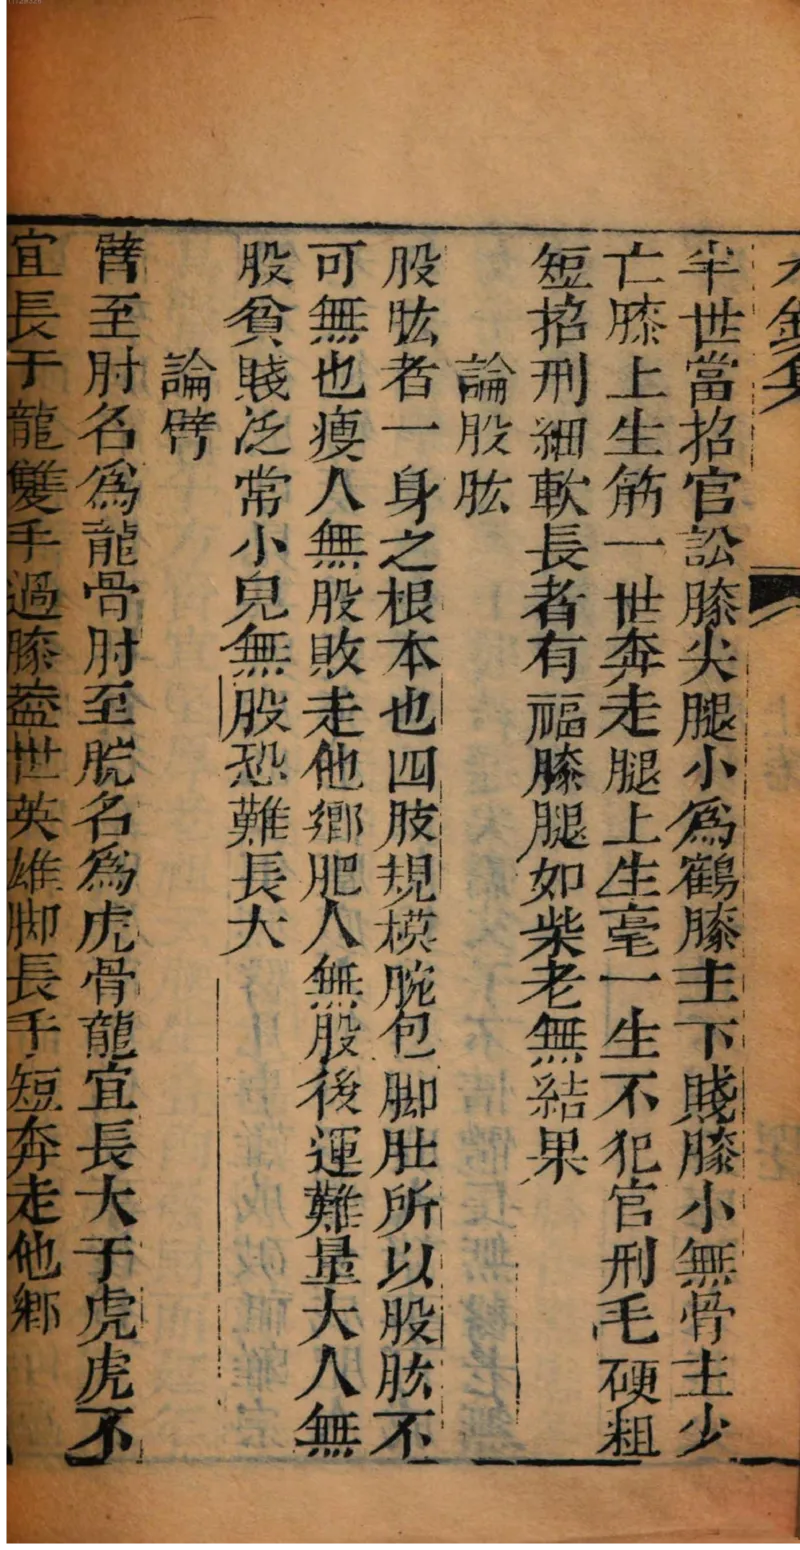 半世當招官訟膝尖腿小爲鶴膝主下賤膝小無骨主少
亡膝上生筋一世奔走腿上生毫一生不犯官刑毛硬粗
短招刑細軟長者有福膝腿如柴老無結果
論股肱
股肱者一身之根本也四肢規模腕包脚肚所以股肱不
可無也瘦人無股敗走他鄉肥人無股後運難量大人無
股貧賤泛常小兒無股恐難長大
論臂
臂至肘名爲龍骨肘至腕名爲虎骨龍宜長大于虎虎不
宜長于龍雙手過膝蓋世英雄脚長手短奔走他鄉